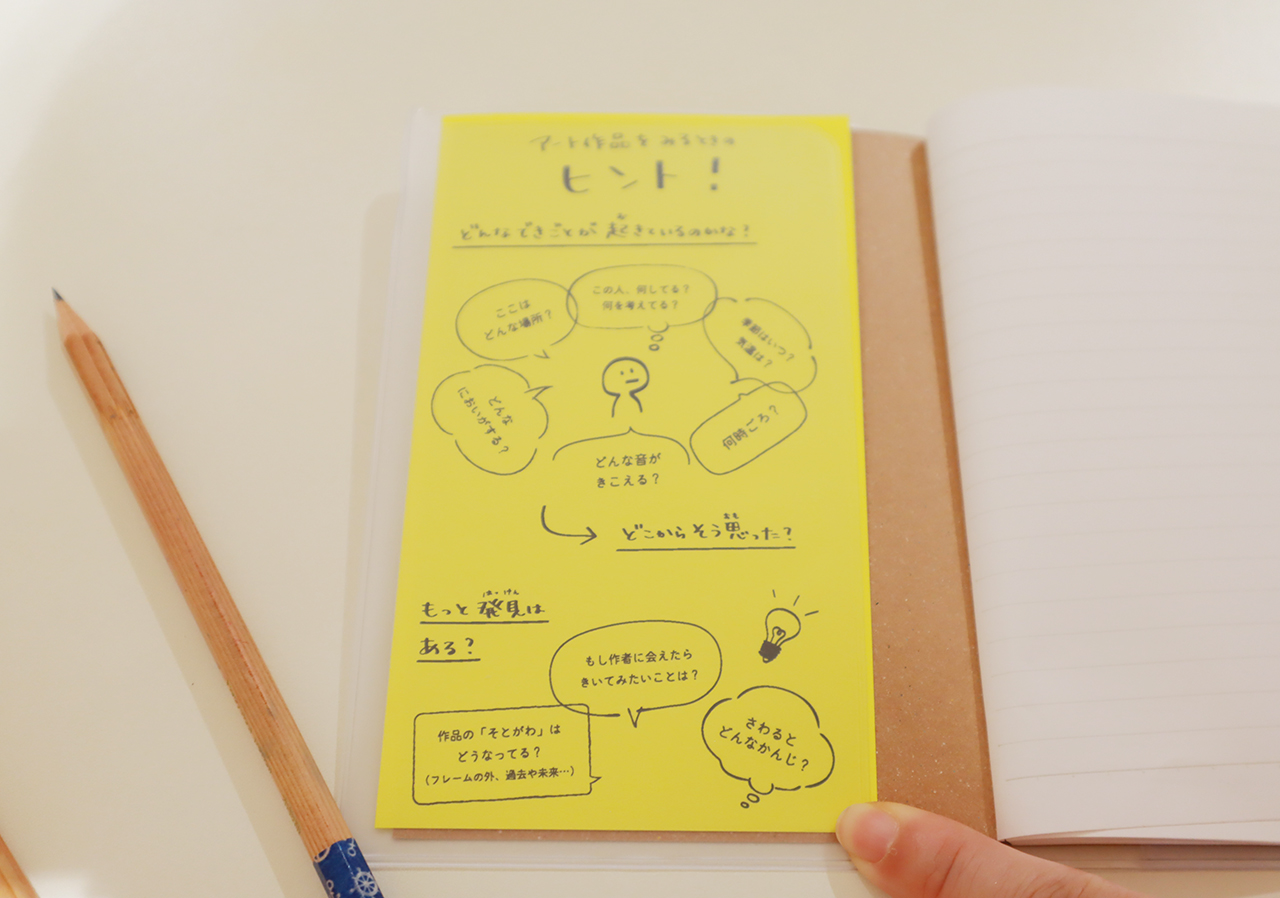 アート作品を みるときの
ヒント!
どんなできごとが 起きているのかな?
お
ここは
どんな場所?
この人、何してる?
何を考えてる?
季節はいつ?
気温は?
どんな
においがする?
何時ごろ?
どんな音が
きこえる?
どこからそう思った?
おも
もっと発見は
はっけん
ある?
もし作者に会えたら
きいてみたいことは?
作品の「そとがわ」は
どうなってる?
(フレームの外、過去や未来…)
さわると
どんなかんじ?